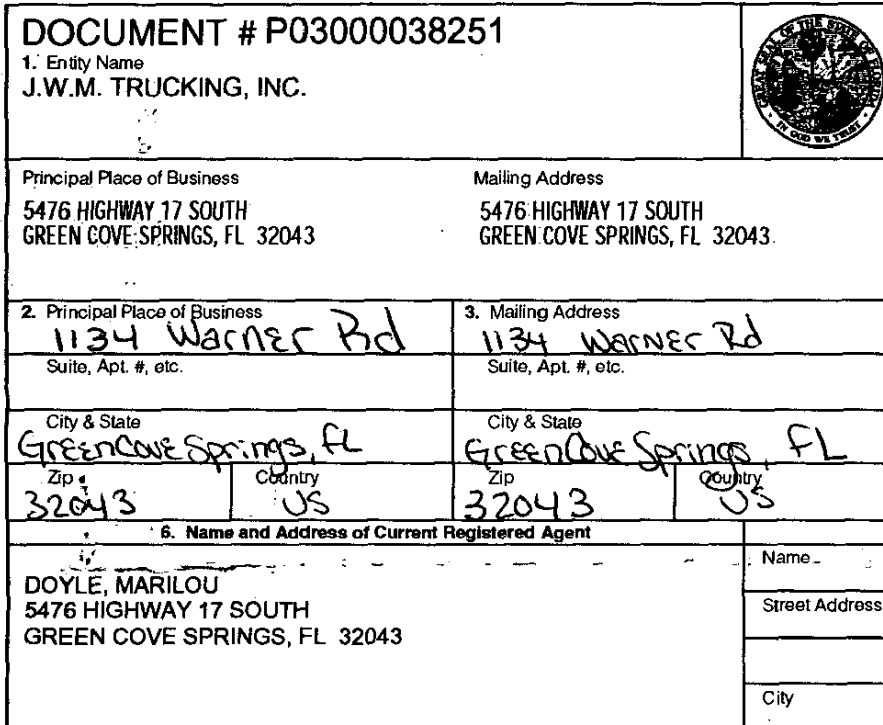 DOCUMENT # P03000038251
1. Entity Name
J.W.M. TRUCKING, INC.
GREAT SEAL OF THE STATE OF FLORIDA
IN GOD WE TRUST
Principal Place of Business
5476 HIGHWAY 17 SOUTH
GREEN COVE SPRINGS, FL 32043
Mailing Address
5476 HIGHWAY 17 SOUTH
GREEN COVE SPRINGS, FL 32043
2. Principal Place of Business
1134 Warner Rd
Suite, Apt. #, etc.
City & State
Green Cove Springs, FL
Zip
32043
Country
US
3. Mailing Address
1134 Warner Rd
Suite, Apt. #, etc.
City & State
Green Cove Springs, FL
Zip
32043
Country
US
6. Name and Address of Current Registered Agent
DOYLE, MARILOU
5476 HIGHWAY 17 SOUTH
GREEN COVE SPRINGS, FL 32043
Name
Street Address
City